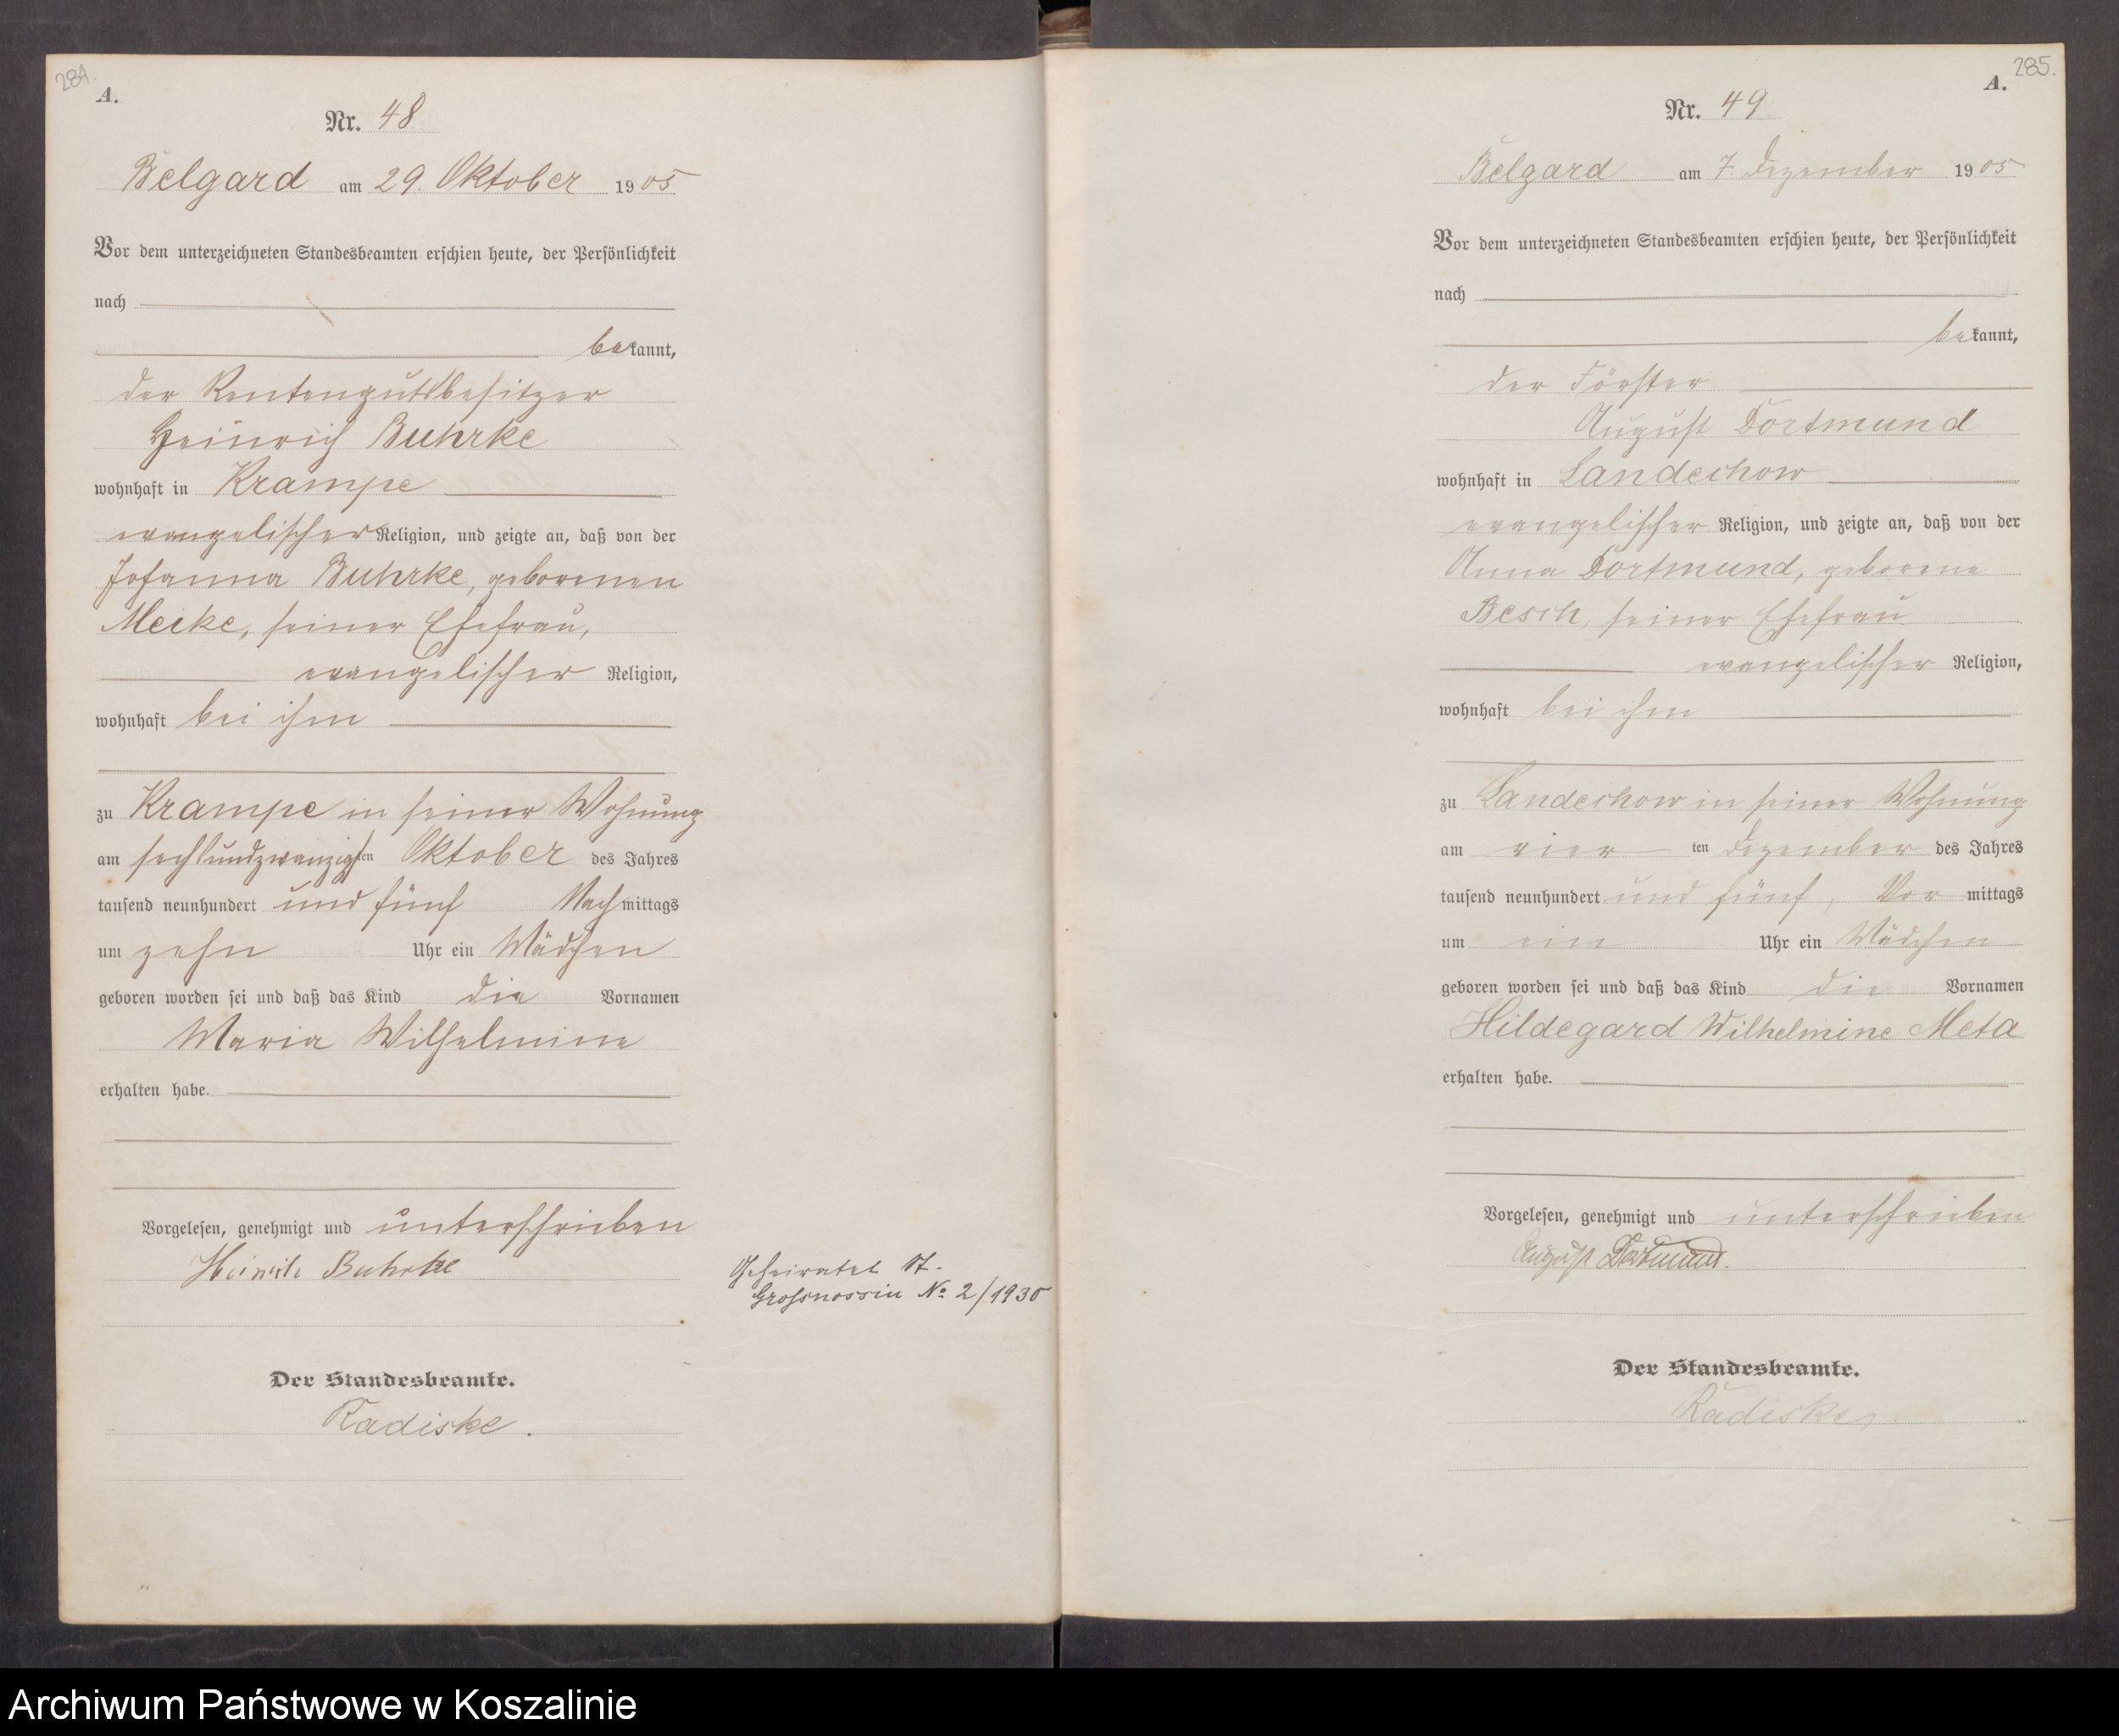 284.
A.
Nr. 48
Belgard am 29. Oktober 1905
Vor dem unterzeichneten Standesbeamten erschien heute, der Persönlichkeit
nach
bekannt,
der Rentengutsbesitzer
Heinrich Buhrke
wohnhaft in Krampe
evangelischer Religion, und zeigte an, daß von der
Johanna Buhrke, geborenen
Meike, seiner Ehefrau,
evangelischer Religion,
wohnhaft bei ihm
zu Krampe in seiner Wohnung
am sechsundzwanzigsten Oktober des Jahres
tausend neunhundert und fünf Nachmittags
um zehn Uhr ein Mädchen
geboren worden sei und daß das Kind die Vornamen
Maria Wilhelmine
erhalten habe.
Vorgelesen, genehmigt und unterschrieben
Heinrich Buhrke
Geheiratet St.
Grossnossin No 2/1930
Der Standesbeamte.
Radiske.
285.
A.
Nr. 49
Belgard am 7. Dezember 1905
Vor dem unterzeichneten Standesbeamten erschien heute, der Persönlichkeit
nach
bekannt,
der Förster
August Dortmund
wohnhaft in Landechow
evangelischer Religion, und zeigte an, daß von der
Anna Dortmund, geborene
Besch, seiner Ehefrau
evangelischer Religion,
wohnhaft bei ihm
zu Landechow in seiner Wohnung
am vier ten Dezember des Jahres
tausend neunhundert und fünf, Vor mittags
um ein Uhr ein Mädchen
geboren worden sei und daß das Kind die Vornamen
Hildegard Wilhelmine Meta
erhalten habe.
Vorgelesen, genehmigt und unterschrieben
August Dortmund.
Der Standesbeamte.
Radiske.
Archiwum Państwowe w Koszalinie